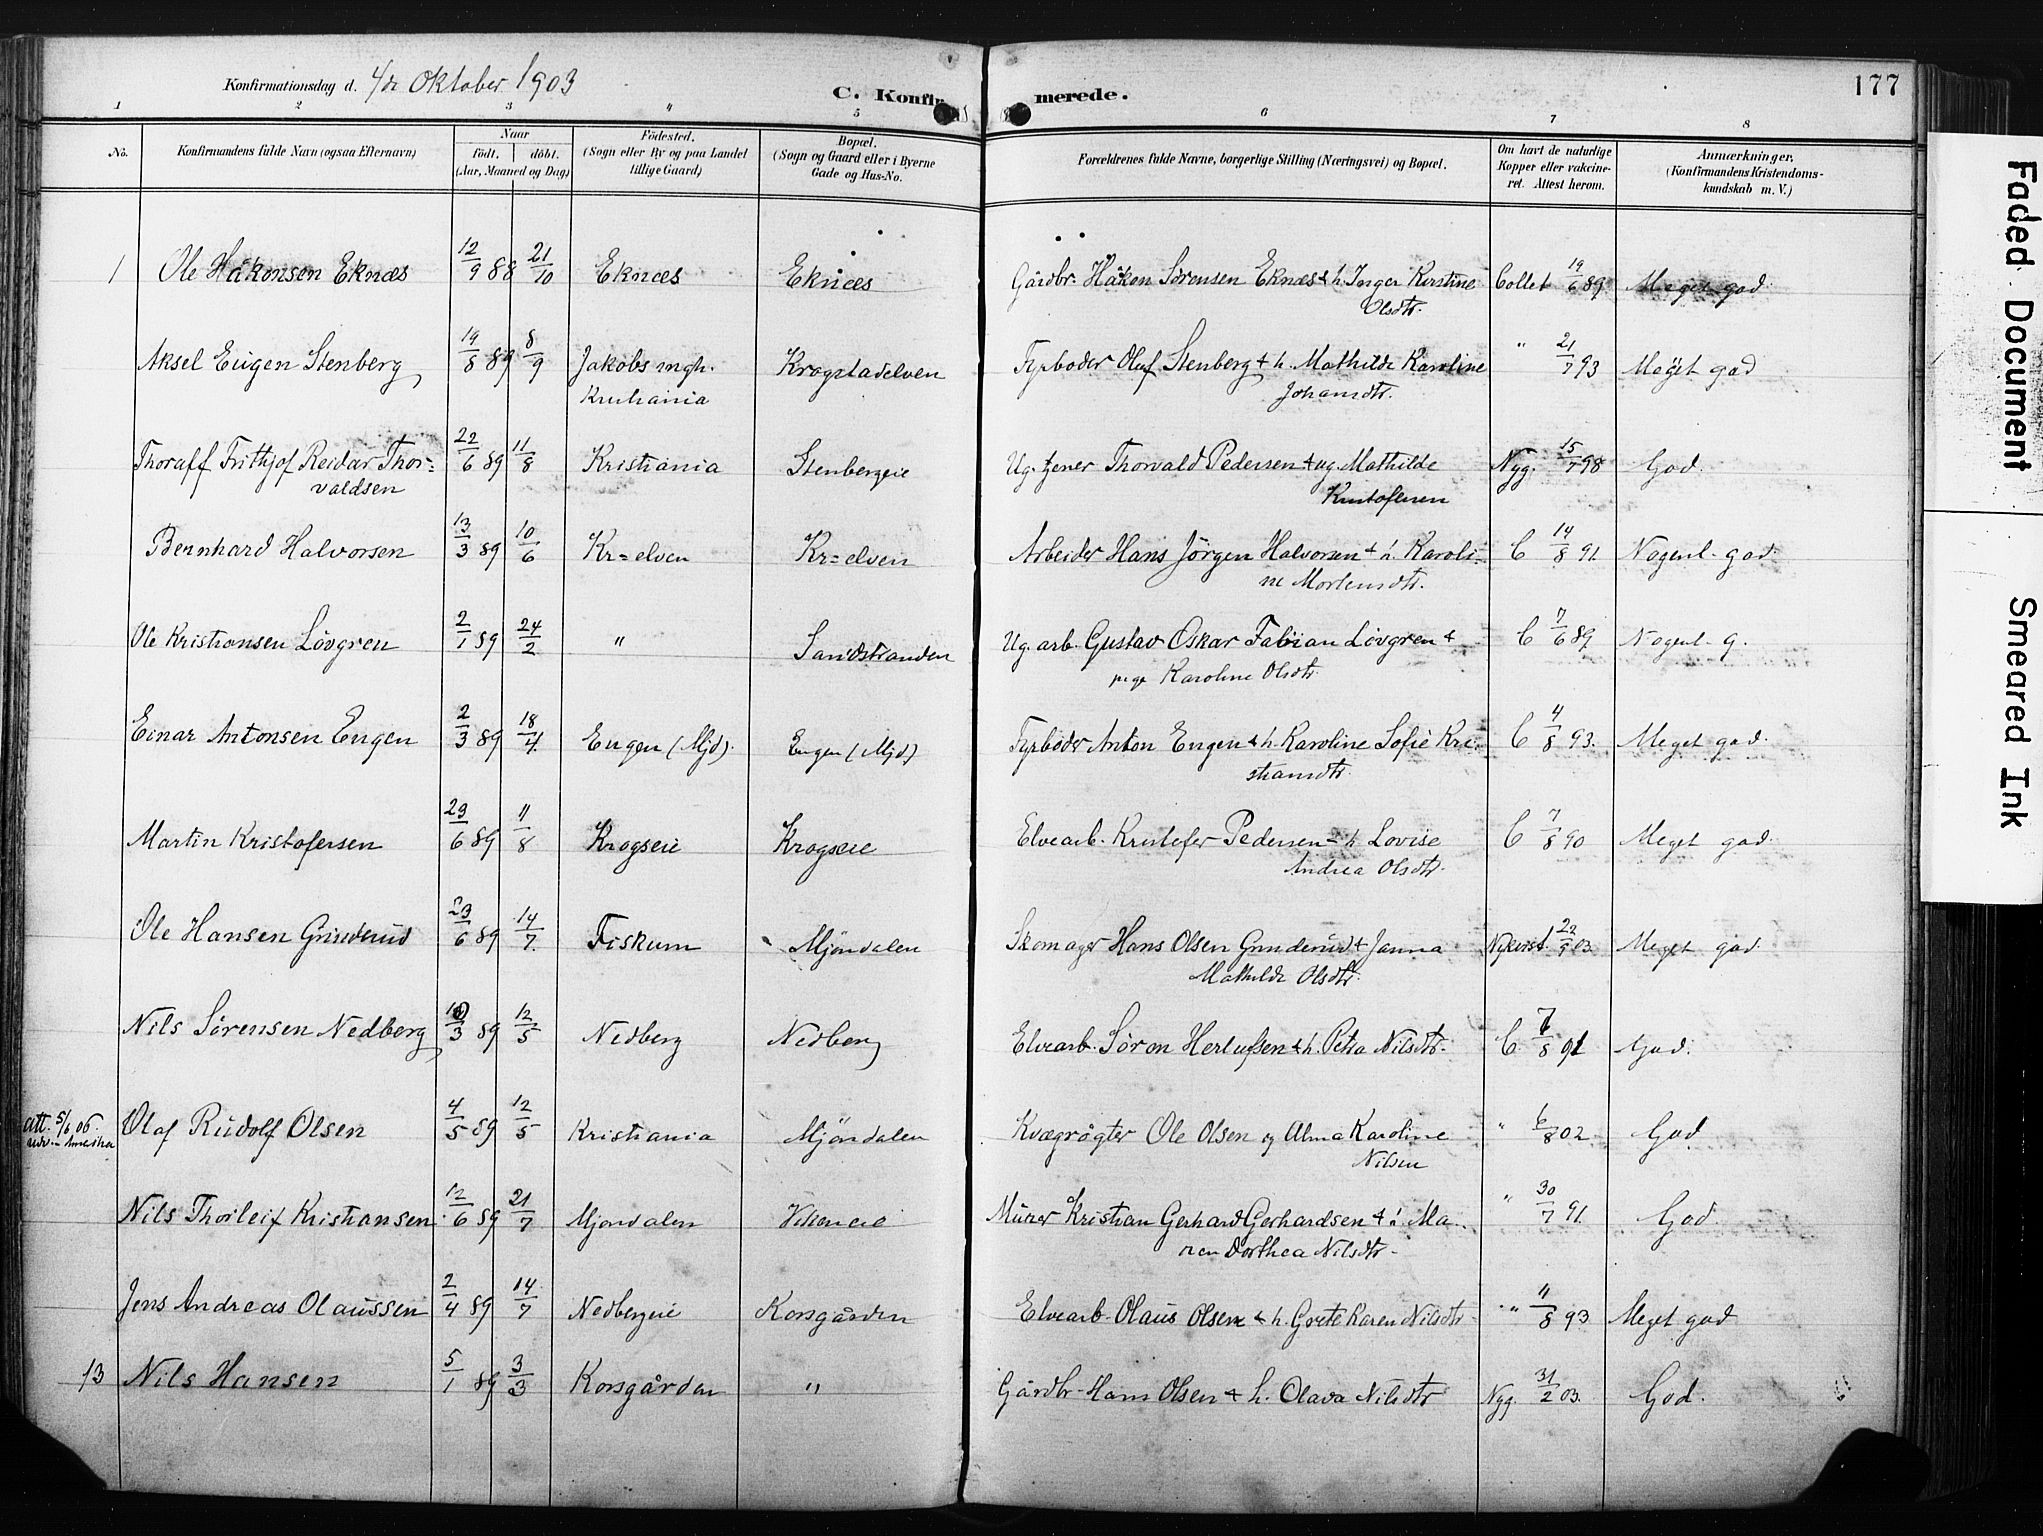 Konfirmationsdag d. 4/de Oktober 1903
C. Konfir merede.
177
1 2 3 " 5 6 7 8
No. Konfirmandens fulde Navn (ogsaa Efternavn) Naar födt. döbt. (Aar, Maaned og Dag) Födested. (Sogn eller By og paa Landet tillige Gaard) Bopæl. (Sogn og Gaard eller i Byerne Gade og Hus-No. Forældrenes fulde Navne, borgerlige Stilling (Næringsvei) og Bopæl. Om havt de naturlige Kopper eller vakcineret. Attest herom. Anmærkninger. (Konfirmandens Kristendomskundskab m. V.)
1 Ole Håkonsen Eknæs 12/9 88 21/10 Eknæs Eknæs Gårdbr. Håkon Sörensen Eknæs & h. Inger Kirstine Collet 19/6 89 Meget god
Olsdtr.
Aksel Eugen Stenberg 19/8 89 8/9 Jakobs mgh. Krogstadelven Fyrböder Oluf Stenberg & h. Mathilde Karoline " 21/7 93 Meget god
Kristiania Johansdtr.
Thoralf Frithjof Reidar Thor- 22/6 89 11/8 Kristiania Stenbergeie Ug. tjener Thorvald Pedersen & ug. Mathilde Nyg. 15/7 98 God
valdsen Kristofersen
Bernhard Halvorsen 13/3 89 10/6 Kr=elven Kr=elven Arbeider Hans Jörgen Halvorsen & h. Karoli- C 14/8 91 Nogenl. god
ne Mortensdtr.
Ole Kristiansen Lövgren 2/1 89 24/2 " Sandstranden Ug. arb. Gustav Oskar Fabian Lövgren & C 7/6 89 Nogenl. g.
pige Karoline Olsdtr.
Einar Antonsen Engen 2/3 89 18/4 Engen (Mjd). Engen (Mjd) Fyrböder Anton Engen & h. Karoline Sofie Kri- C 4/8 93. Meget god.
stiansdtr.
Martin Kristofersen 29/6 89 11/8 Krogseie Krogseie Elvearb. Kristofer Pedersen = h Lovise C 7/8 90 Meget god.
Andrea Olsdtr.
Ole Hansen Grinderud 23/6 89 14/7 Fiskum Mjöndalen Skomager Hans Olsen Grinderud & Janna 22/9 03 Meget god
Mathilde Olsdtr.
Nils Sörensen Nedberg 10/3 89 12/5 Nedberg Nedberg Elvearb. Sören Herlufsen & h. Petra Nilsdtr. C. 7/8 91 God.
att. 5/6 06. Olaf Rudolf Olsen 4/5 89 12/5 Kristiania Mjöndalen Kvægrögter Ole Olsen og Alma Karoline " 6/8 02 God.
Amerika Nilsen
Nils Thorleif Kristiansen 12/6 89 21/7 Mjöndalen Murer Kristian Gerhard Gerhardsen & h. Ma- " 30/7 91. God.
ren Dorthea Nilsdtr.
Jens Andreas Olaussen 2/4 89 14/7 Nedbergeie Korsgården Elvearb. Olaus Olsen & h. Grete Karen Nilsdtr. " 11/8 93 Meget god
13 Nils Hansen 5/1 89 3/3 Korsgården " Gårdbr. Hans Olsen & h. Olava Nilsdtr Nyg. 31/2 03. God.
Faded Document
Smeared Ink